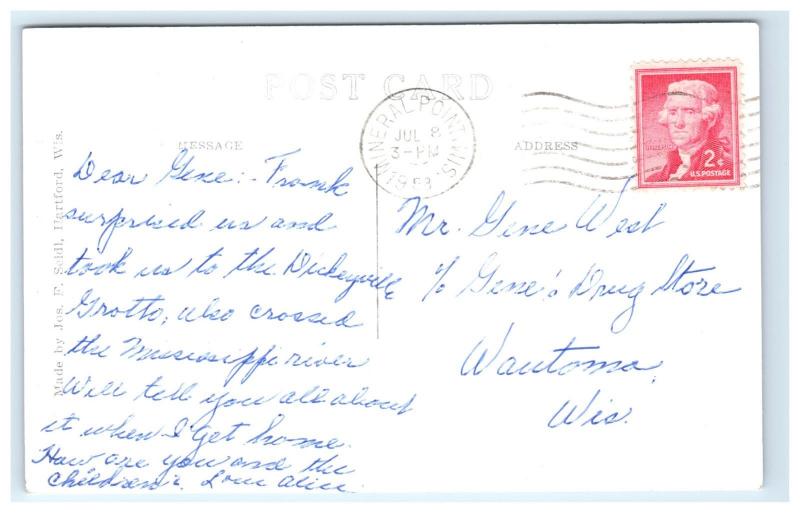 POST CARD
MESSAGE
ADDRESS
MINERAL POINT, WIS.
JUL 8
3-PM
2¢
U.S. POSTAGE
Made by Jos. F. Seidl, Hartford, Wis.
Dear Gene:- Frank
surprised us and
took us to the Dickeyville
Grotto, also crossed
the Mississippi river
Will tell you all about
it when I get home.
How are you and the
children?
Mr. Gene West
% Gene's Drug Store
Wautoma,
Wis.